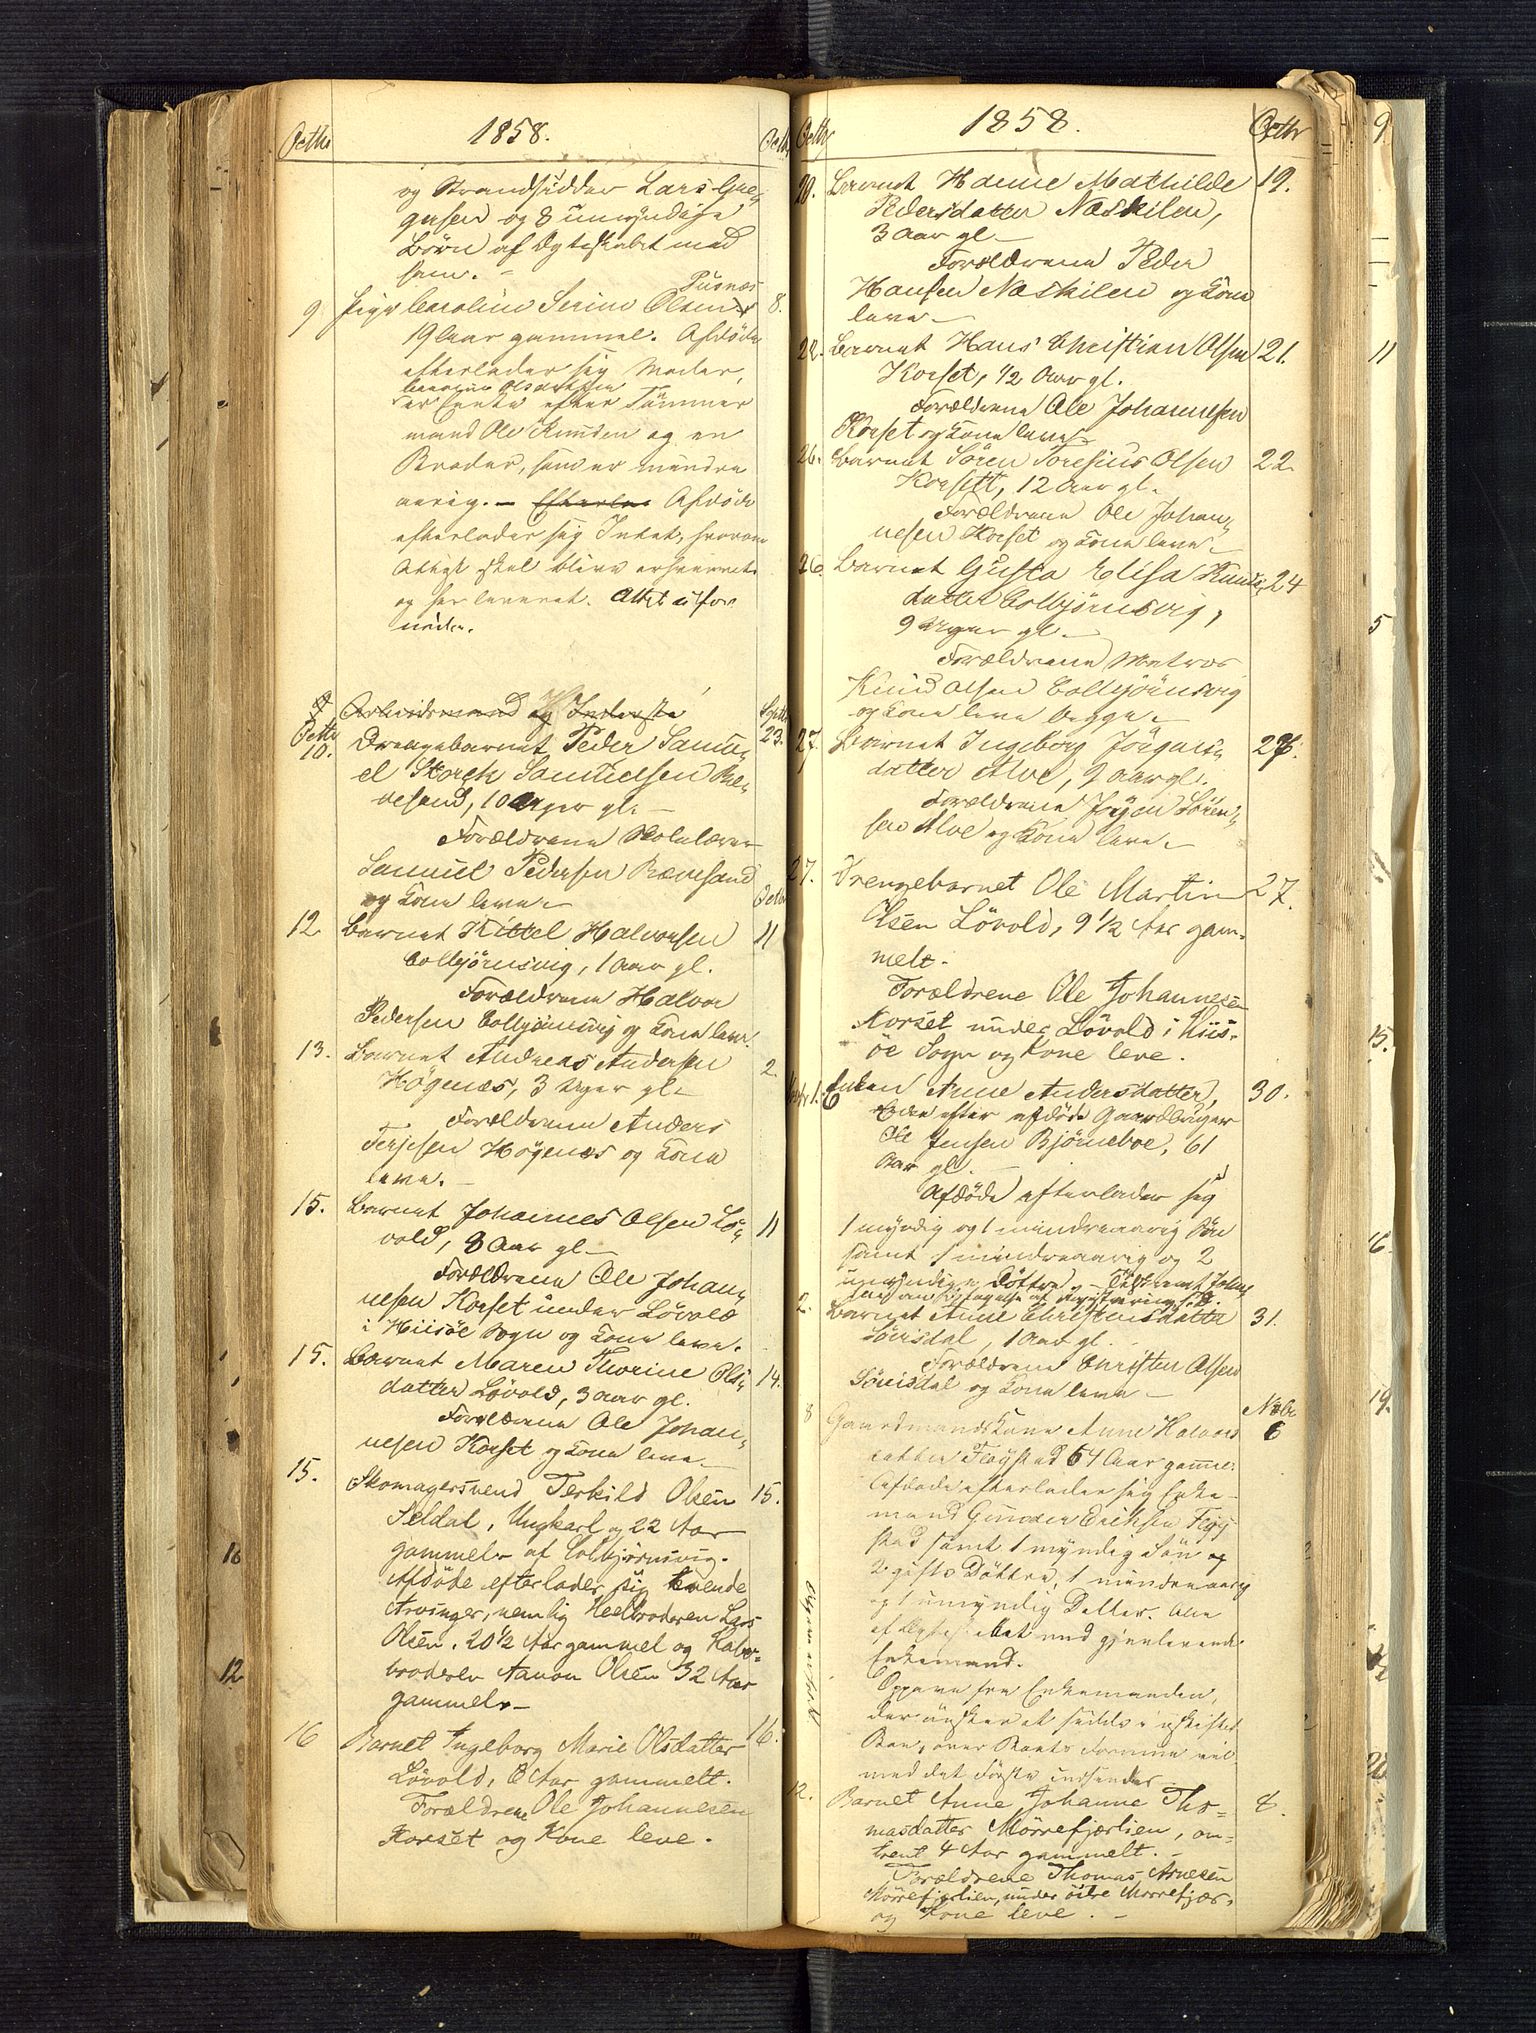 Octbr 1858. Octbr
og Strandsidder Lars Gre-
gersen og 8 umyndige
Børn af Ægteskabet med
ham. -
Pusnæs
9 Pige Caroline Serine Olsen 8.
19 Aar gammel. Afdøde
efterlader sig Moder,
Olsdatter
er Enke efter Tømmer
mand Ole Knudsen og en
Broder, som er mindre
aarig. - Efterla Afdøde
efterlader sig Intet, hvorom
Attest skal blive erhvervet
og her leveret. Attest
9 Arbeidsmand og Inderste Septbr
Octbr
10. Drengebarnet Peder Samu- 23.
el Storck Samuelsen Ræ-
vesand, 10 Uger gl. -
Forældrene Skolelærer
Samuel Pedersen Rævesand
og Kone leve. - Octbr
12. Barnet Kittel Halvorsen 11
Colbjørnsvig, 1 Aar gl.
Forældrene Halvor
Pedersen Colbjørnsvig og Kone leve.
13. Barnet Andreas Andersen 2.
Högenæs, 3 Uger gl. -
Forældrene Anders
Terjesen Högenæs og Kone
leve. -
15. Barnet Johannes Olsen Lö- 11
vold, 8 Aar gl. -
Forældrene Ole Johan-
nesen Korset under Lövold
i Hiisöe Sogn og Kone leve.
15. Barnet Maren Thorine Ols- 14.
datter Lövold, 3 Aar gl.
Forældrene Ole Johan-
nesen Korset og Kone leve. -
15. Skomagersvend Terkild Olsen 15.
Seldal, Ungkarl og 22 Aar
gammel - af Colbjörnsvig.
Afdöde efterlader sig tvende
Arvinger, nemlig Heelbroderen Lars
Olsen, 20 1/2 Aar gammel og Halv-
broderen Aanon Olsen 32 Aar
gammel. -
16 Barnet Ingeborg Marie Olsdatter 16.
Lövold, 6 Aar gammelt.
Forældrene Ole Johannesen
Korset og Kone leve.
Octbr 1858. Octbr
20. Barnet Hanne Mathilde 19.
Pedersdatter Næskilen,
3 Aar gl -
Forældrene Peder
Hansen Næskilen og Kone
leve -
22. Barnet Hans Christian Olsen 21.
Korset, 1/2 Aar gl.
Forældrene Ole Johannesen
Korset og Kone leve -
26. Barnet Sören Toresius Olsen 22.
Korsett, 12 Aar gl.
Forældrene Ole Johan-
nesen Korset og Kone leve -
26. Barnet Gusta Elisa Knuds- 24
datter Colbjörnsvig,
9 Uger gl. -
Forældrene Matros
Knud Olsen Colbjörnsvig
og Kone leve begge -
27. Barnet Ingeborg Jörgens- 26.
datter Alve, 2 Aar gl.
Forældrene Jörgen Sören-
sen Alve og Kone leve -
27. Drengebarnet Ole Martin 27.
Olsen Lövold, 9 1/2 Aar gam-
melt.
Forældrene Ole Johannesen
Korset under Lövold i Hiis-
öe Sogn og Kone leve.
Novbr 1. Enken Anne Andersdatter, 30.
Enke efter afdöde Gaardbruger
Ole Jensen Bjönneboe, 61
Aar gl. -
Afdöde efterlader sig
1 myndig og 1 mindreaarig Sön
samt 1 mindreaarig og 2
umyndige Döttre. -
2. Barnet Anne Christensdatter 31.
Söeisdal, 1 Aar gl.
Forældrene Christen Olsen
Söeisdal og Kone leve -
Novbr
8 Gaardmandskone Anne Halvors 6
datter Flöystad 64 Aar gammel.
Afdöde efterlader sig Enke-
mand Gunder Eriksen Flöy
stad samt 1 myndig Sön og
2 gifte Döttre, 1 mindreaarig
og 1 umyndig Datter. Alle
af Ægteskabet med gjenlevende
Enkemand.
Opgave fra Enkemanden,
der önsker at sidde i uskiftet
Boe, over Boets Formue vil
med det förste indsendes
12. Barnet Anne Johanne Tho- 8.
masdatter Mörrefjærlien, om-
trent 4 Aar gammelt. -
Forældrene Thomas Arnesen
Mörrefjærlien, under östre Morrefjær
og Kone leve. -